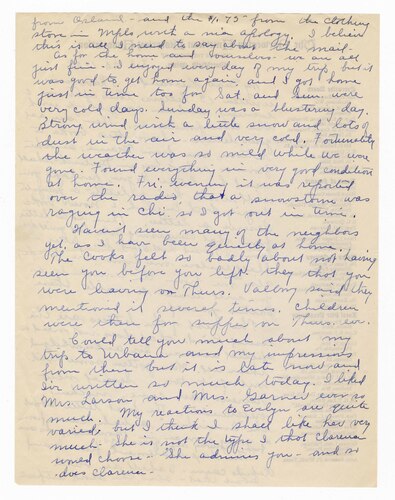 from Oxland - and the $1.75 from the clothing
store in Mpls with a nice apology. I believe
this is all I need to say about the mail.
As for the home and ourselves - we are all
just fine. I enjoyed every day of my trip but it
was good to get home again and I got home
just in time too for Sat. and Sun. were
very cold days. Sunday was a blustering day,
strong wind with a little snow and lots of
dust in the air and very cold. Fortunately
the weather was so mild while we were
gone. Found everything in very good condition
at home. Fri. evening it was reported
over the radio, that a snowstorm was
raging in Chi. so I got out in time.
Haven't seen many of the neighbors
yet, as I have been quietly at home.
The Cooks felt so badly about not having
seen you before you left. they that you
were leaving on Thurs. Valborg said they
mentioned it several times. Children
were there for supper on Thurs. eve.
Could tell you much about my
trip to Urbana and my impressions
from there but it is late now and
I've written so much today. I liked
Mrs. Larson and Mrs. Garner ever so
much. My reactions to Evelyn are quite
varied, but I think I shall like her very
much. She is not the type I that Clarence
would choose - She admires you - and so
does Clarence -